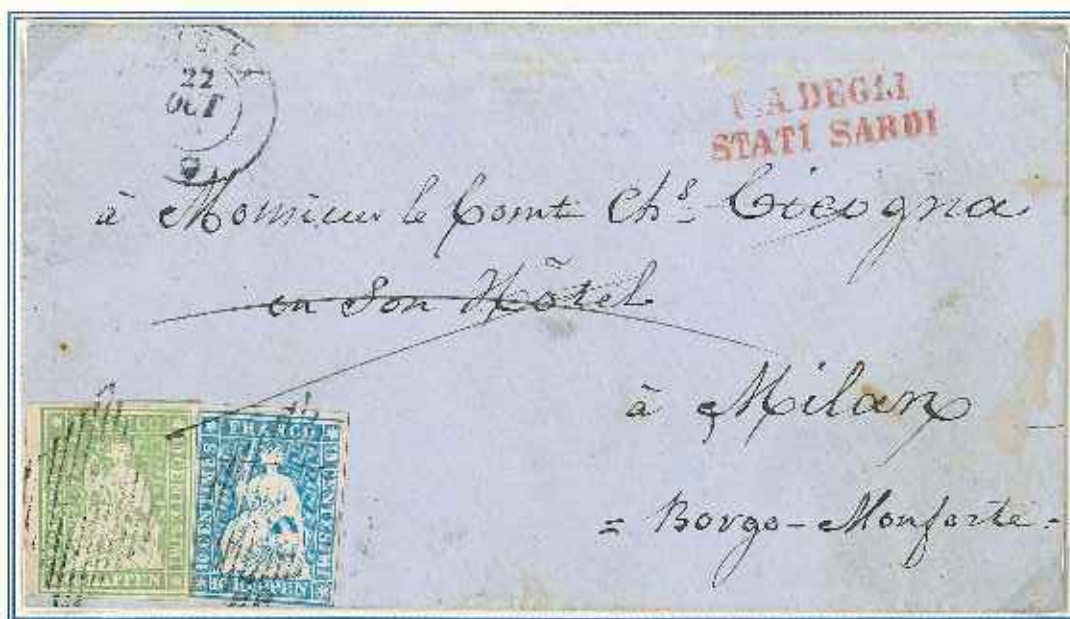 22
OCT
DEGLI
STATI SARDI
à Monsieur le Comt Chs. Cicogna
en Son Hôtel
à Milan
= Borgo-Monforte =
FRANCO
10 CENTIMES
10 RAPPEN